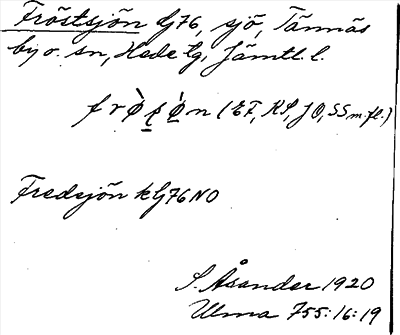 Fröstsjön G76, sjö, Tännäs
by o. sn, Hede tg, Jämtl. l.
(EF, KP, JO, SS m.fl.)
Fredsjön kG76NO
S. Åsander 1920
Ulma 755:16:19